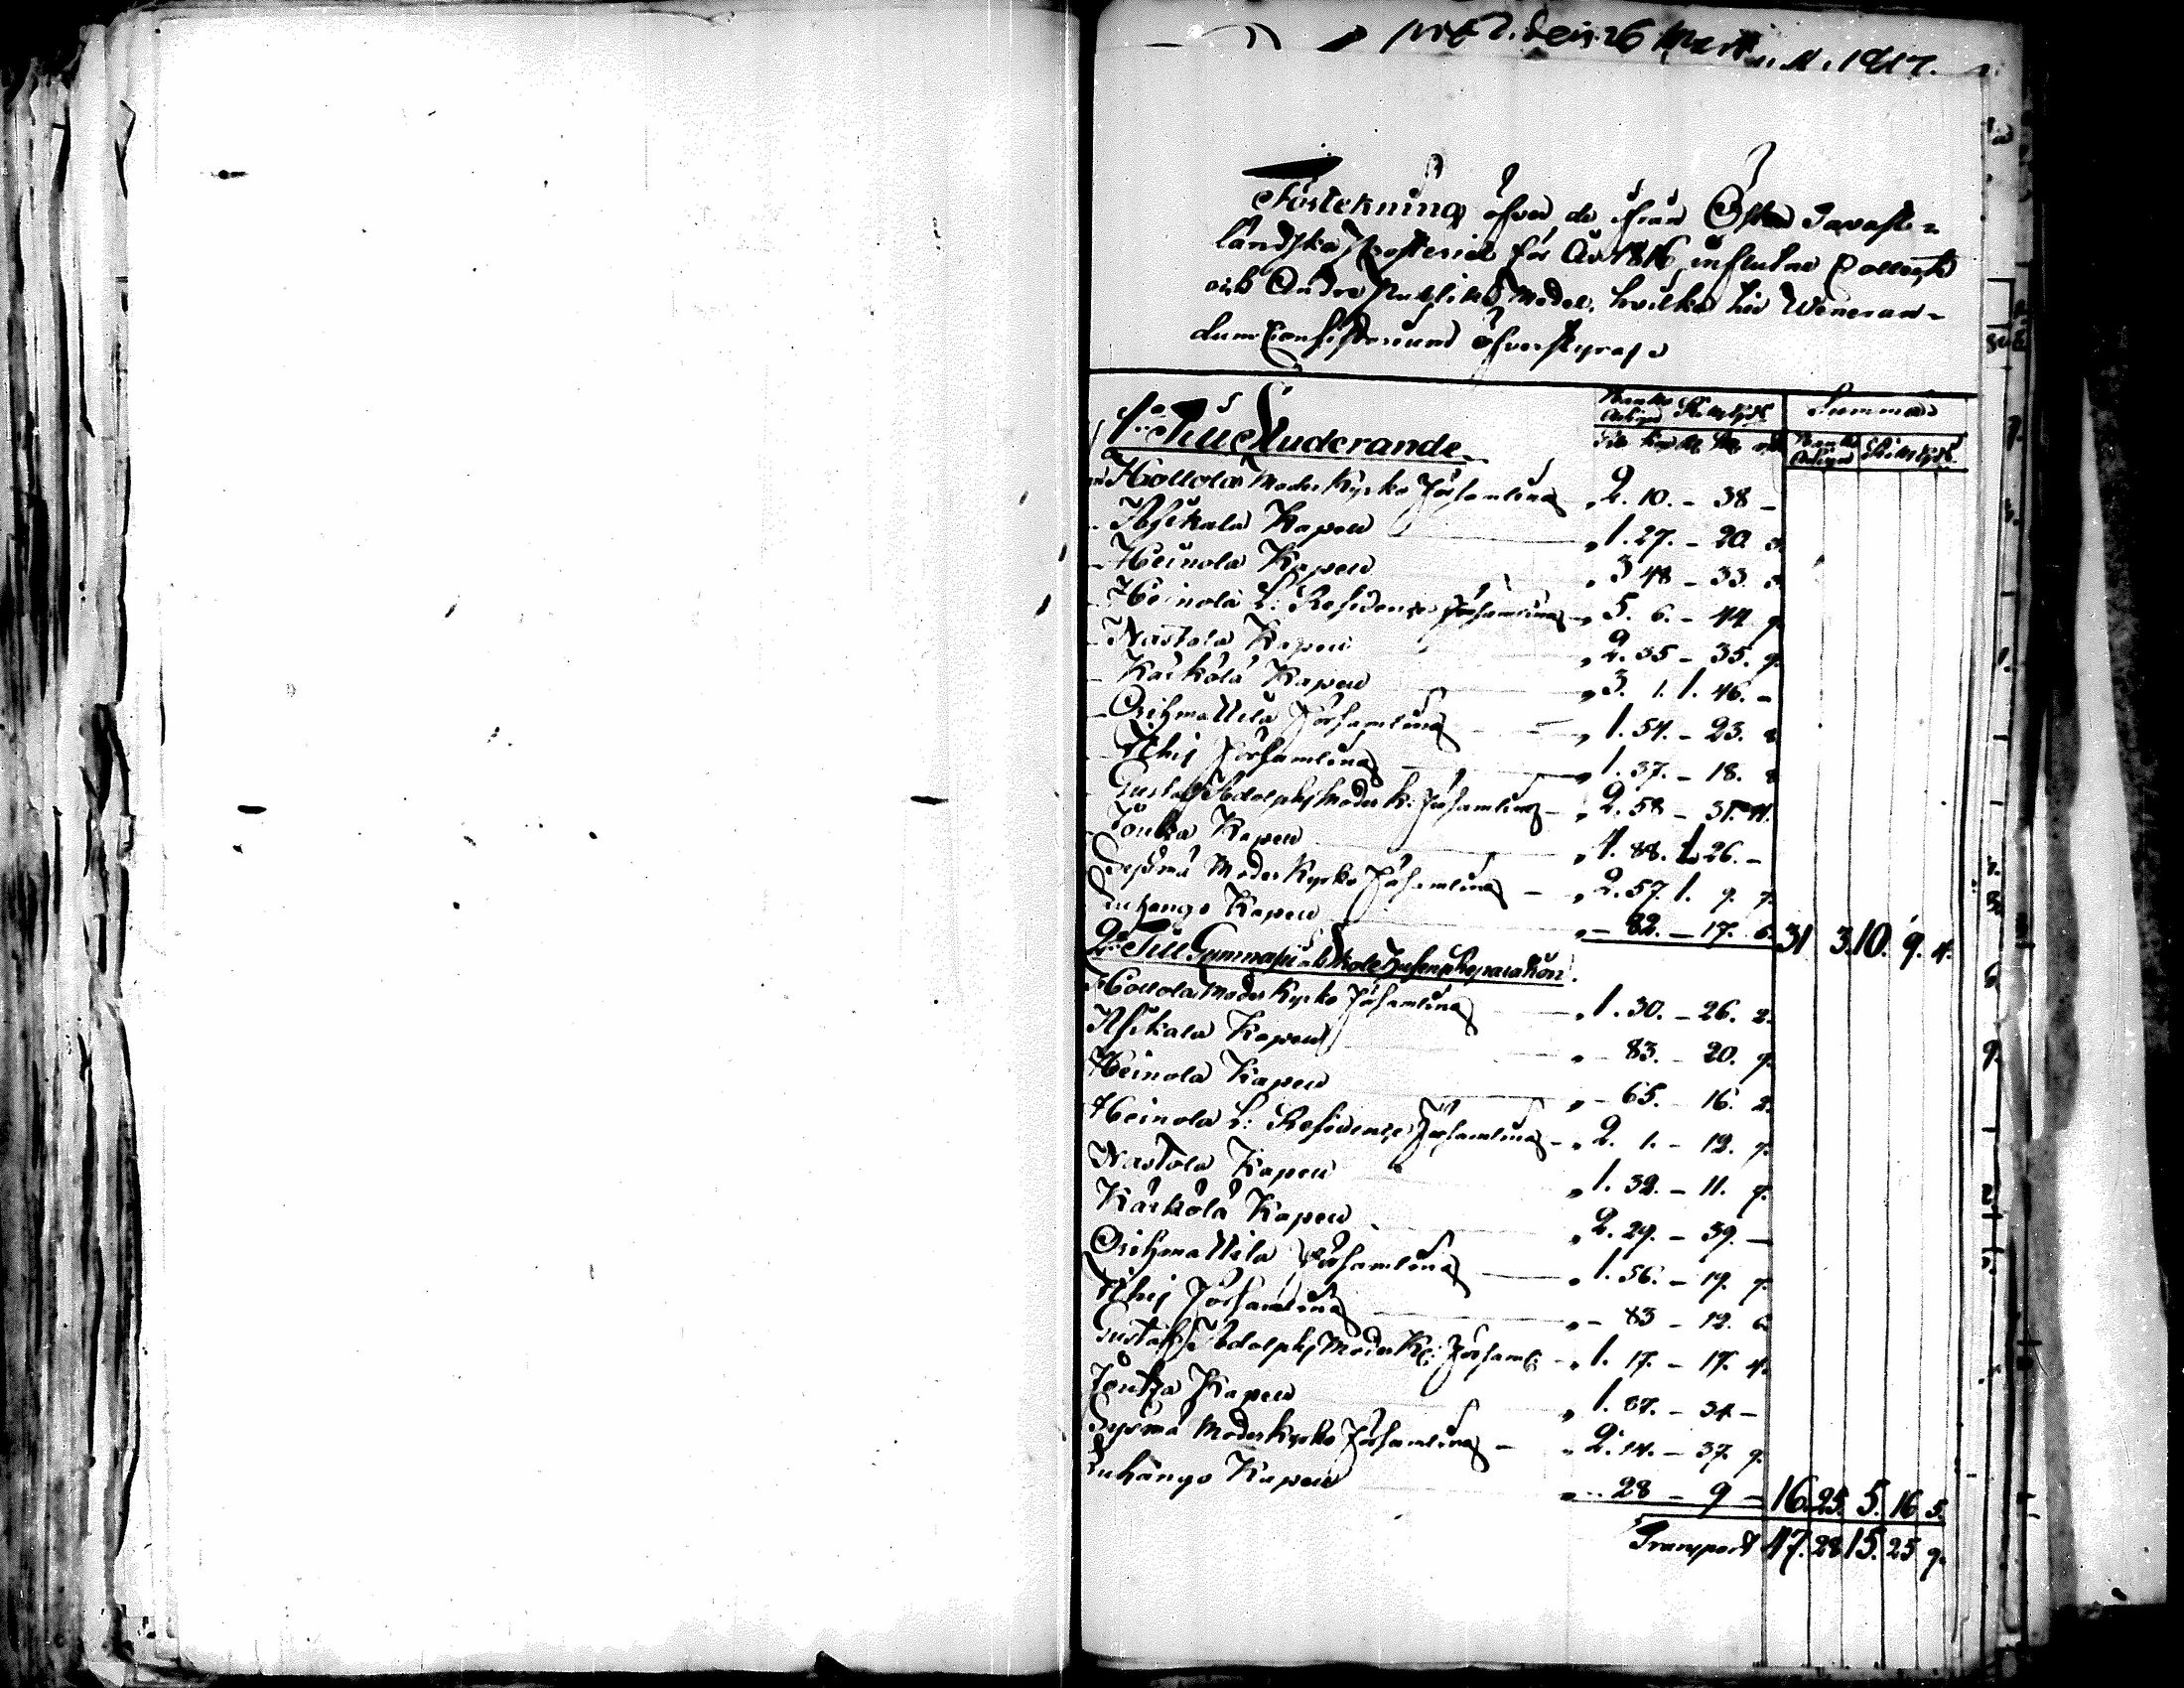 den 26 Martii 1817.
Förtekning öfver de ifrån Öfre Tavast-
ländska Prosteriet för År 1816 influtne Collecter
och Andra Publike Medel, hvilka till Veneran-
dum Consistorium öfverskyras
Banko Assign Rik: Rgds Summa
Banko Assign Rik: Rgds
1:o Till Studerande
Hollola Moder Kyrko Församling 2. 10. - 38 -
Asikala Kapell 1. 27. - 20
Heinola Kapell 3 48 - 33.
Heinola L: Residence Församling 5. 6. - 44. 9.
Nastola Kapell 2. 35 - 35. 9.
Kärkölä Kapell 3. 1. 1. 46. -
Orihmattila Församling 1. 54. - 23. 8
Ithis Församling 1. 37. - 18. 8
Gustaf Adolphs Moder K: Församling 2. 58 - 31. 11.
Joutsa Kapell 4. 88. 1. 26. -
Sysmä Moder Kyrko Församling 2. 57. 1. 9. 7.
Luhango Kapell - 82. - 17. 6. 31 3. 10. 9. 4.
2:o Till Gymnasii och Schole Husens Reparation.
Hollola Moder Kyrko Församling 1. 30. - 26. 2.
Asikala Kapell - 83. - 20. 9.
Heinola Kapell - 65. - 16. 2.
Heinola L: Residence Församling 2. 1. - 12. 7.
Nastola Kapell 1. 32. - 11. 7.
Kärkölä Kapell 2. 29. - 39. -
Orihmattila Församling 1. 56. - 19. 7.
Ithis Församling - 83 - 12. 6.
Gustaf Adolphs Moder K: Församl: 1. 17. - 17. 4.
Joutsa Kapell 1. 87. - 34 -
Sysmä Moder Kyrko Församling 2. 14. - 37. 9.
Luhango Kapell - 28 - 9 - 16. 25. 5. 16 5.
Transport 47. 28 15. 25 9.